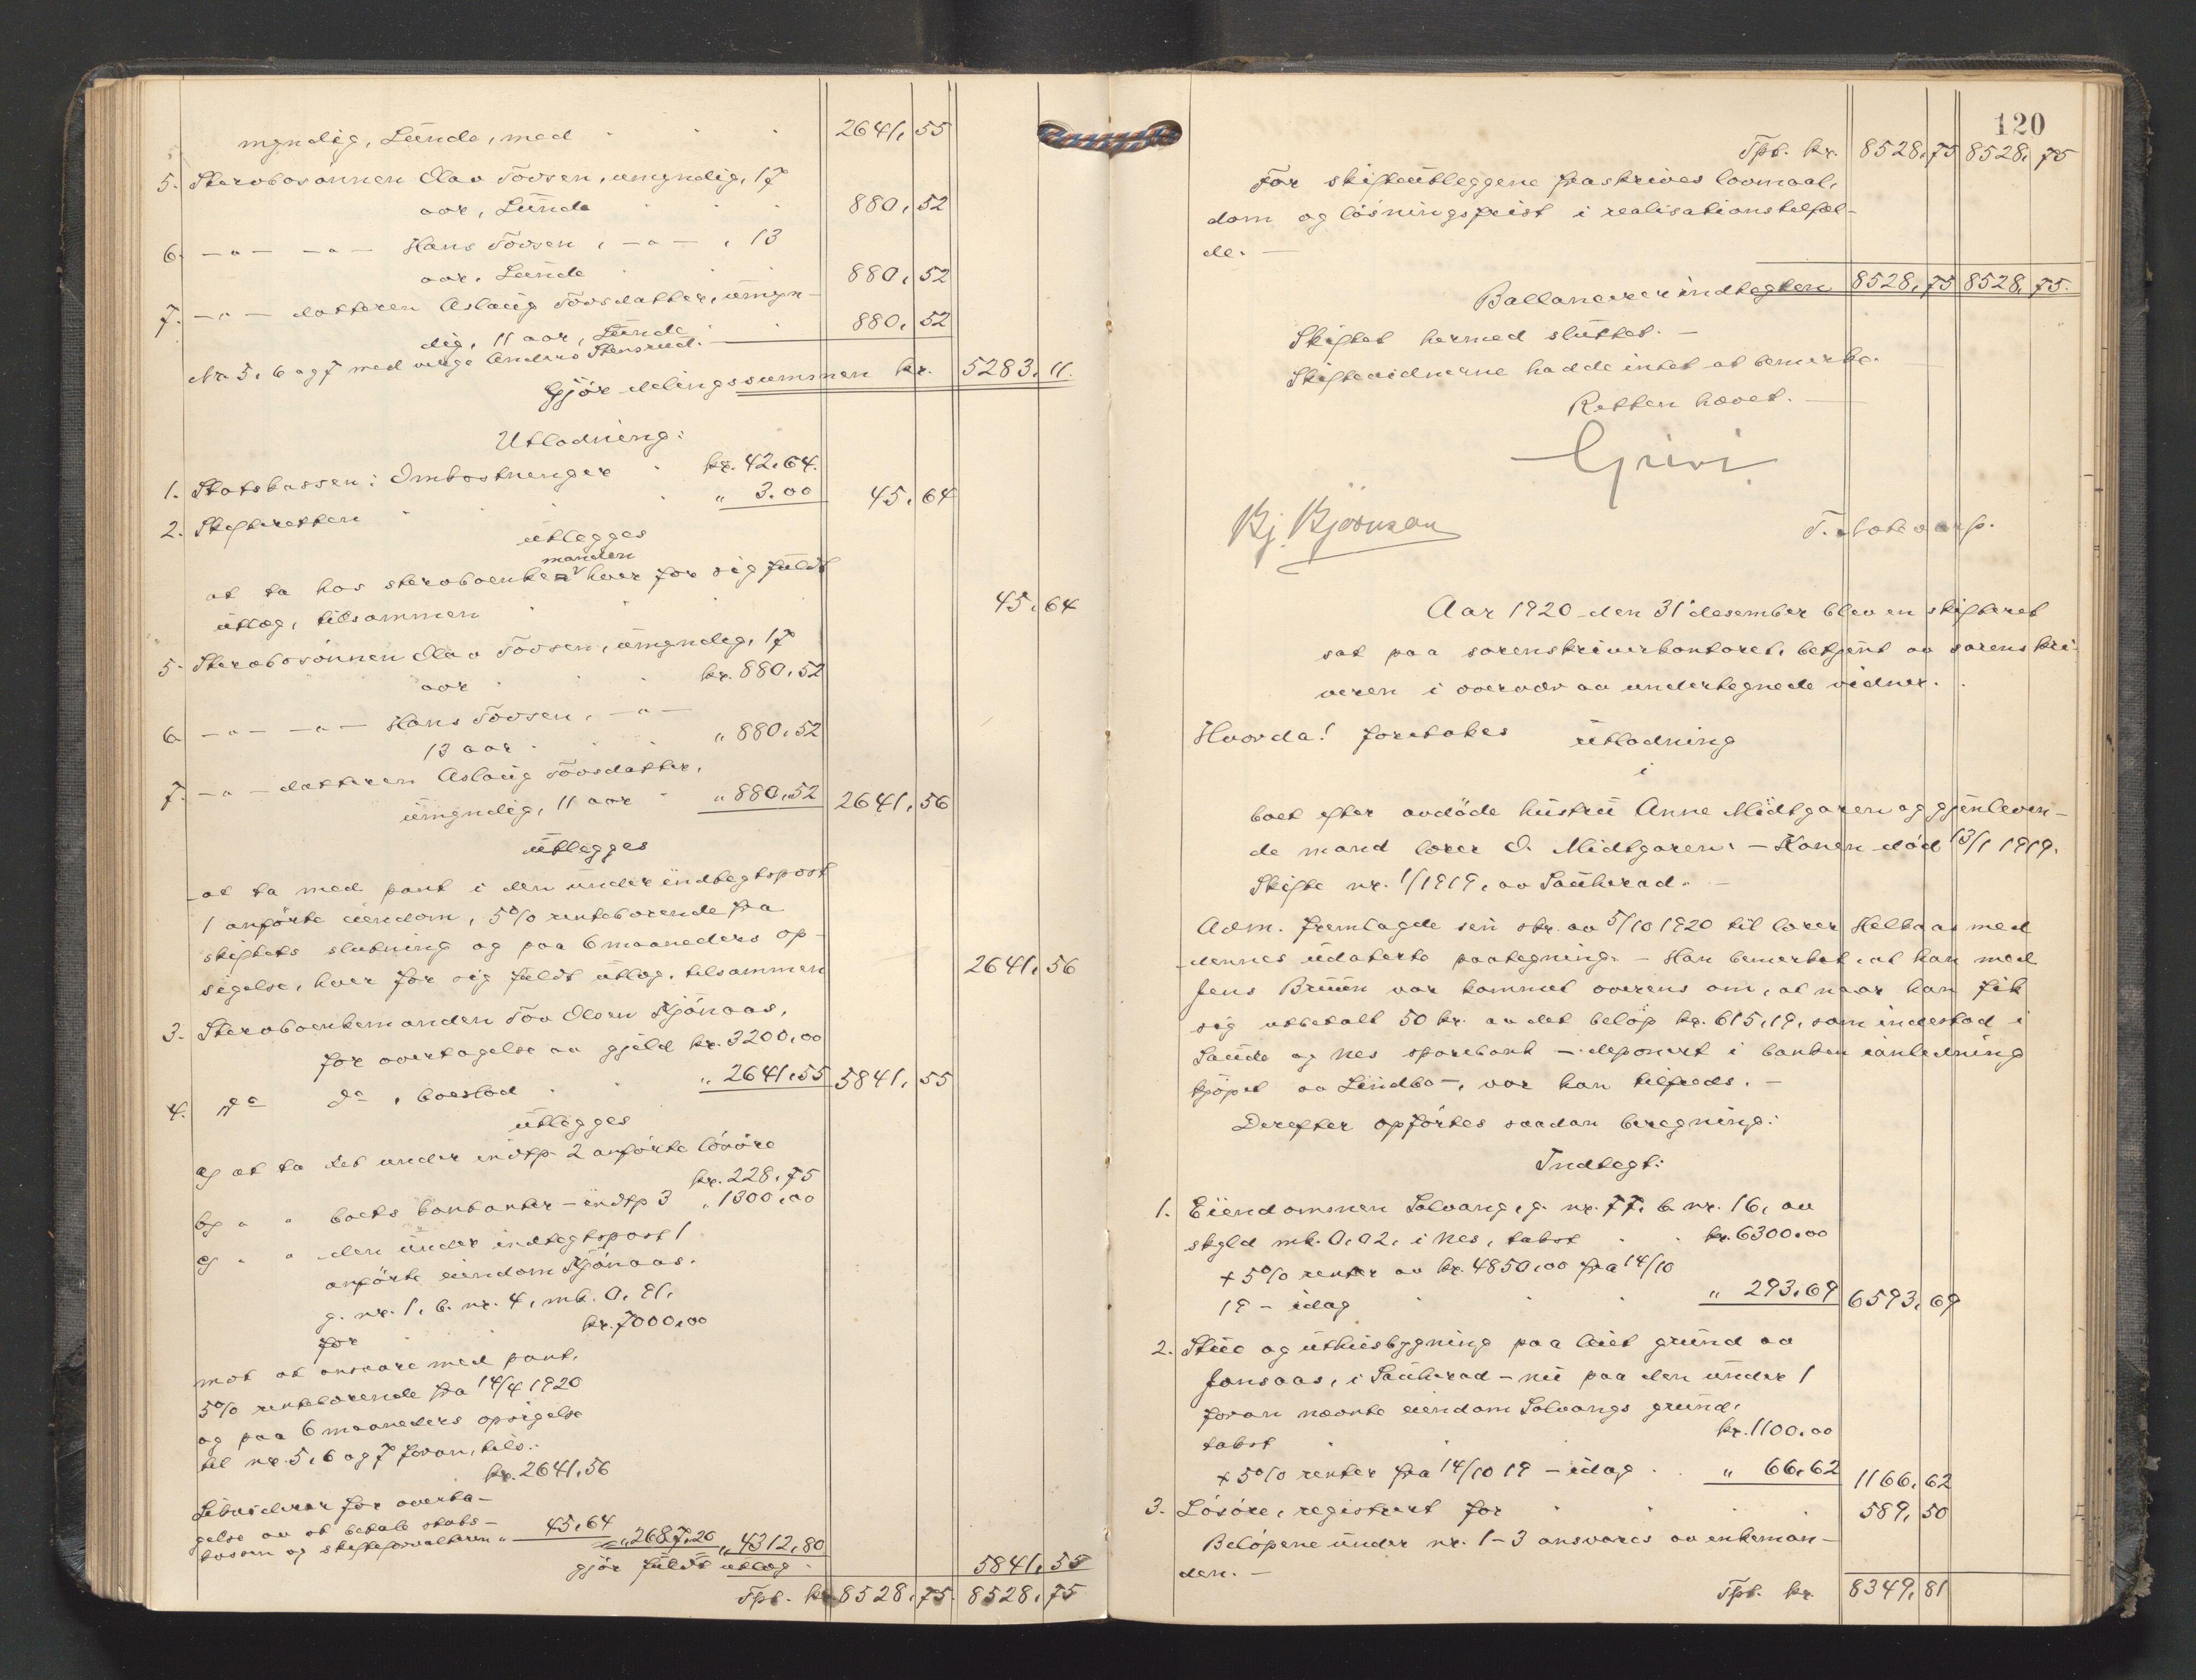 myndig, Lunde, med 2641,55
5. Stervbosönnen Olav Tovsen, umyndig, 17
aar, Lunde 880,52
6. —"— —"— Hans Tovsen, —"—, 13
aar, Lunde 880,52
7. —"— datteren Aslaug Tovsdatter, umyn-
dig, 11 aar, Lunde 880,52
Nr 5, 6 og 7 med verge Anders Stensrud.
Gjör delingssummen kr. 5283,11.
Utlodning:
1. Statskassen: Omkostninger kr. 42,64.
2. Skifteretten " 3.00 45,64
utlegges
manden
at ta hos stervboenke hver for sig fuldt
utlæg, tilsammen 45,64
5. Stervbosönnen Olav Tovsen, umyndig, 17
aar kr. 880,52
6. —"— —"— Hans Tovsen, —"—
13 aar " 880,52
7. —"— datteren Aslaug Tovsdatter,
umyndig, 11 aar " 880,52 2641,56
utlegges
at ta med pant i den under indtegtspost
1 anförte eiendom, 5% rentebærende fra
skiftets slutning og paa 6 maaneders op-
sigelse, hver for sig fuldt utlæg, tilsammen 2641,56
3. Stervboenkemanden Tov Olsen Kjönaas,
for overtagelse av gjeld kr. 3200,00
4. do do, boeslod " 2641,55 5841,55
utlegges
a) at ta det under indtp 2 anförte lösöre
kr. 228,75
b) " " boets kontanter - indtp 3 " 1300,00
c) " " den under indtegtspost 1
anförte eiendom Kjönaas,
g. nr. 1, b. nr. 4, mk. 0,91,
for kr. 7000,00
mot at ansvare med pant,
5% rentebærende fra 14/4 1920
og paa 6 maaneders opsigelse
til nr. 5, 6 og 7 foran, tils.
kr. 2641,56
Likesaa for overta-
gelse av at betale stats-
kassen og skifteforvalteren " 45,64 " 2687,20 " 4312,80
gjör fuldt utlæg 5841,55
Tpt. kr. 8528,75. 8528,75
120
Tpt. kr. 8528,75 8528,75
For skifteutleggene fraskrives lovmaal,
dom og lösningsfrist i realisationstilfæl-
de. —
Ballancerer indtegten 8528,75 8528,75.
Skiftet hermed sluttet. —
Skiftevidnerne hadde intet at bemerke.
Retten hævet. —
Grivi
Bj. Björnson
T.
Aar 1920 den 31 desember blev en skifteret
sat paa sorenskriverkontoret, betjent av sorenskri
veren i overvær av undertegnede vidner.
Hvorda! foretokes utlodning
i
boet efter avdöde hustru Anne Midtgaren og gjenleven-
de mand lærer O. Midtgaren. — Konen död 13/1 1919.
Skifte nr. 1/1919, av Sauherad. —
Adm. fremlagde sin skr. av 5/10 1920 til lærer Heltaas med
dennes udaterte paategning. — Han bemerket, at han med
Jens Bruun var kommet overens om, at naar han fik
sig utbetalt 50 kr. av det belöp kr. 615,19, som indestod i
Saude og Nes sparebank — deponert i banken i anledning
kjöpet av Lindbo —, var han tilfreds. —
Derefter opförtes saadan beregning:
Indtegt:
1. Eiendommen Solvang, g. nr. 77, b. nr. 16, av
skyld mk. 0,02, i Nes, takst kr. 6300,00
+ 5% renter av kr. 4850,00 fra 14/10
19 - idag " 293,69 6593,69
2. Stue og uthusbygning paa leiet grund av
Jonsaas, i Sauherad - nu paa den under 1
foran nævnte eiendom Solvangs grund,
takst kr. 1100,00
+ 5% renter fra 14/10 19 - idag " 66,62 1166,62
3. Lösöre, registrert for 589,50
Belöpene under nr. 1-3 ansvares av enkeman-
den. —
Tpt. kr. 8349,81